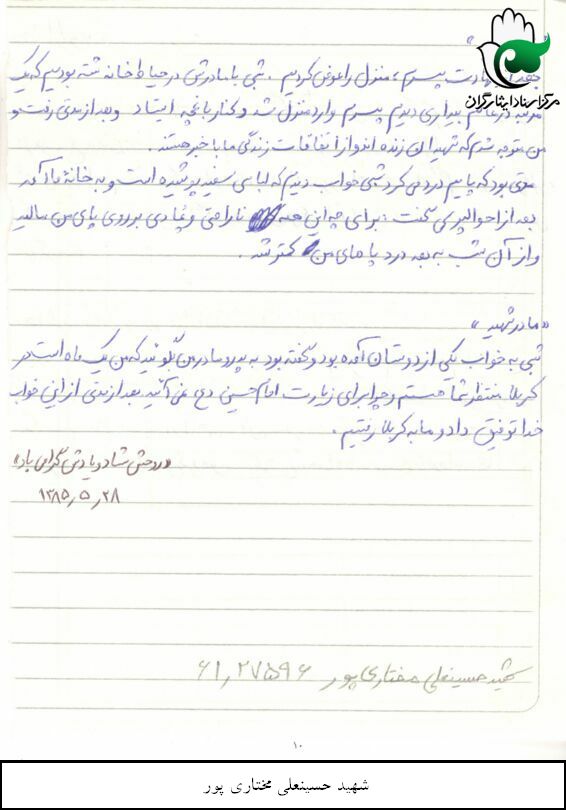 مرکز اسناد ایثارگران
شهادت پسرم، منزل را عوض کردیم. شبی با مادرش در حیاط خانه نشسته بودیم که یک
مرتبه در عالم بیداری دیدم پسرم وارد منزل شد و کنار باغچه ایستاد و بعد از مدتی رفت و
من متوجه شدم که شهیدان زنده اند و از اتفاقات زندگی ما با خبر هستند.
مدتی بود که پایم درد می کرد شبی خواب دیدم که لباس سفید پوشیده است و به خانه ما آمد
بعد از احوالپرسی گفت: برای چه این همه ناراحتی و پمادی بر روی پای من مالید
و از آن شب به بعد درد پاهای من کمتر شد.
«مادر شهید»
شبی به خواب یکی از دوستان آمده بود و گفته بود به پدر و مادر من بگوئید که من یک ماه است در
کربلا منتظر شما هستم و چرا برای زیارت امام حسین (ع) نمی آئید بعد از مدتی از این خواب
خدا توفیق داد و ما به کربلا رفتیم.
«روحش شاد و یادش گرامی باد»
۱۳۸۵٫۵٫۲۸
شهید حسینعلی مختاری پور ۶۱٫۲۷۵۹۶
۱۰
شهید حسینعلی مختاری پور